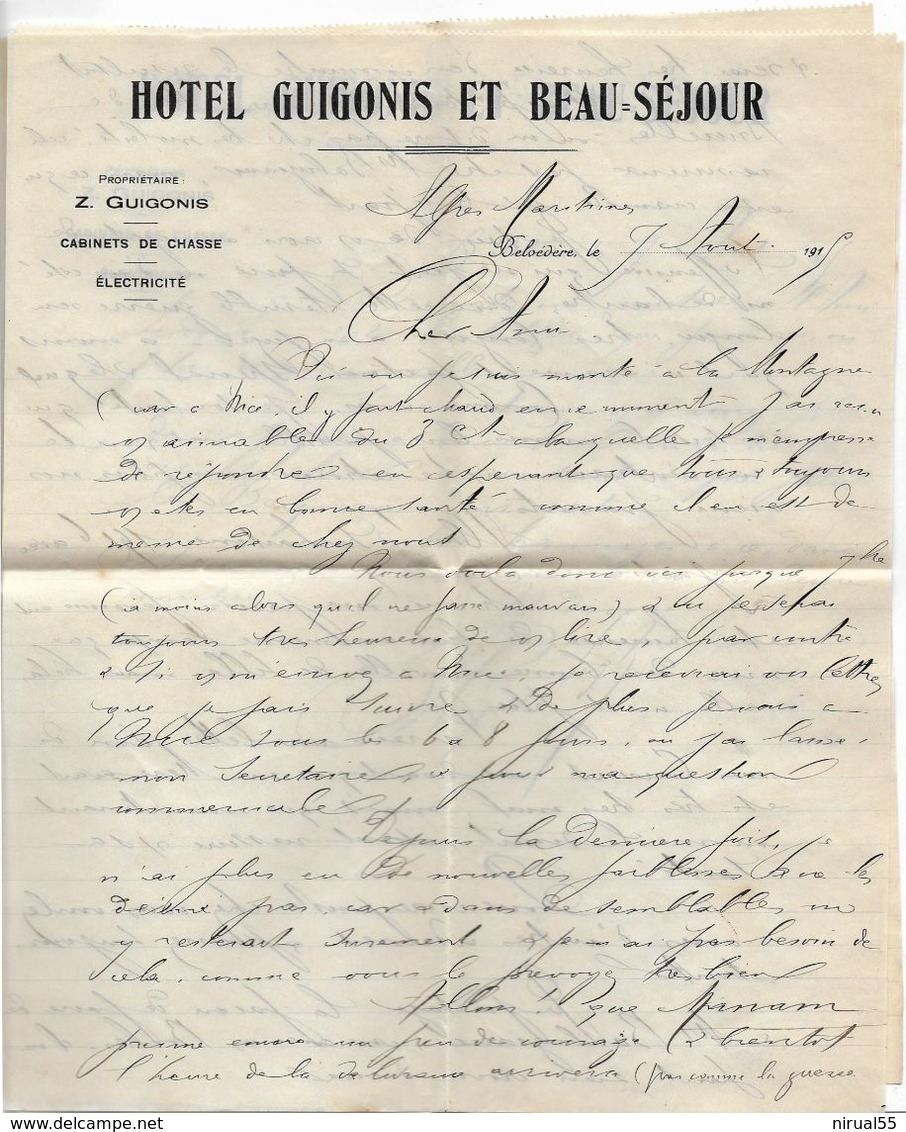 HOTEL GUIGONIS ET BEAU=SÉJOUR
PROPRIÉTAIRE:
Z. GUIGONIS
CABINETS DE CHASSE
ÉLECTRICITÉ
Alpes Maritimes
Belvédère, le 7 Aout 1915
Cher Ami
Ici ou je suis monté à la Montagne
(car a Nice, il y fait chaud en ce moment j'ai reçu
v aimable du 3 ct a laquelle je m'empresse
de répondre en esperant que tous & toujours
v etes en bonne santé comme il en est de
meme de chez nous
Nous voila donc ici jusque 7bre
(à moins alors qu'il ne fasse mauvais) & ou je serai
toujours tres heureux de v lire, par contre
& si v m'ecrivez a Nice, je recevrai vos lettres
que je fais suivre & De plus je vais a
Nice tous les 6 a 8 jours, ou j'ai laissé
mon Secretaire, & pour ma question
commerciale
Depuis la derniere fois, je
n'ai plus eu de nouvelles faiblesses que les
deux pas car dans de semblables on
y resterait surement & je n'ai pas besoin de
cela, comme vous le prevoyez tres bien
Allons! que Maman
prenne encore un peu de courage & bientot
l'heure de la delivrance arrivera (pas comme la guerre
nirual55